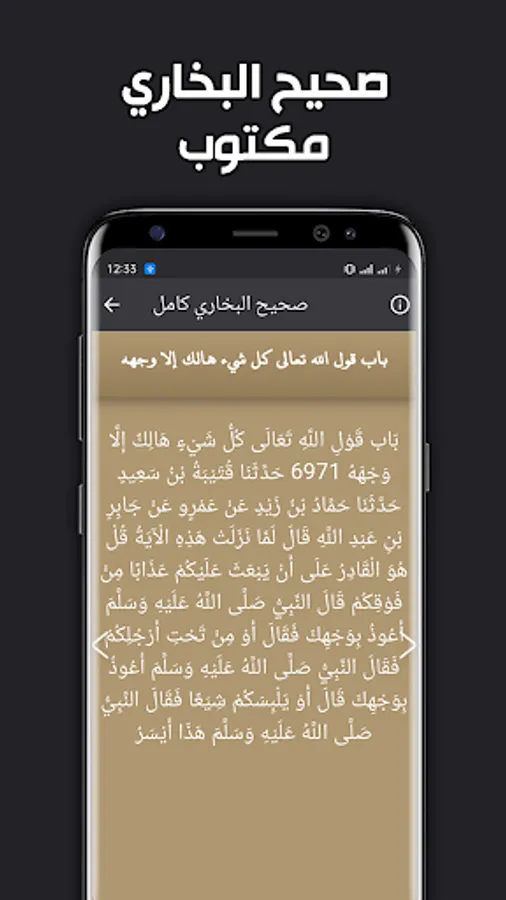 صحيح البخاري
مكتوب
12:33
صحيح البخاري كامل
باب قول الله تعالى كل شيء هالك إلا وجهه
بَاب قَوْلِ اللَّهِ تَعَالَى كُلُّ شَيْءٍ هَالِكٌ إلَّا
وَجْهَهُ 6971 حَدَّثَنَا قُتَيْبَةُ بْنُ سَعِيدٍ
حَدَّثَنَا حَمَّادُ بْنُ زَيْدٍ عَنْ عَمْرٍو عَنْ جَابِرِ
بْنِ عَبْدِ اللَّهِ قَالَ لَمَّا نَزَلَتْ هَذِهِ الْآيَةُ قُلْ
هُوَ الْقَادِرُ عَلَى أَنْ يَبْعَثَ عَلَيْكُمْ عَذَابًا مِنْ
فَوْقِكُمْ قَالَ النَّبِيُّ صَلَّى اللَّهُ عَلَيْهِ وَسَلَّمَ
أعُوذُ بِوَجْهِكَ فَقَالَ أوْ مِنْ تَحْتِ أرْجُلِكُمْ
فَقَالَ النَّبِيُّ صَلَّى اللَّهُ عَلَيْهِ وَسَلَّمَ أعُوذُ
بِوَجْهِكَ قَالَ أوْ يَلْبِسَكُمْ شِيَعًا فَقَالَ النَّبِيُّ
صَلَّى اللَّهُ عَلَيْهِ وَسَلَّمَ هَذَا أيْسَرُ